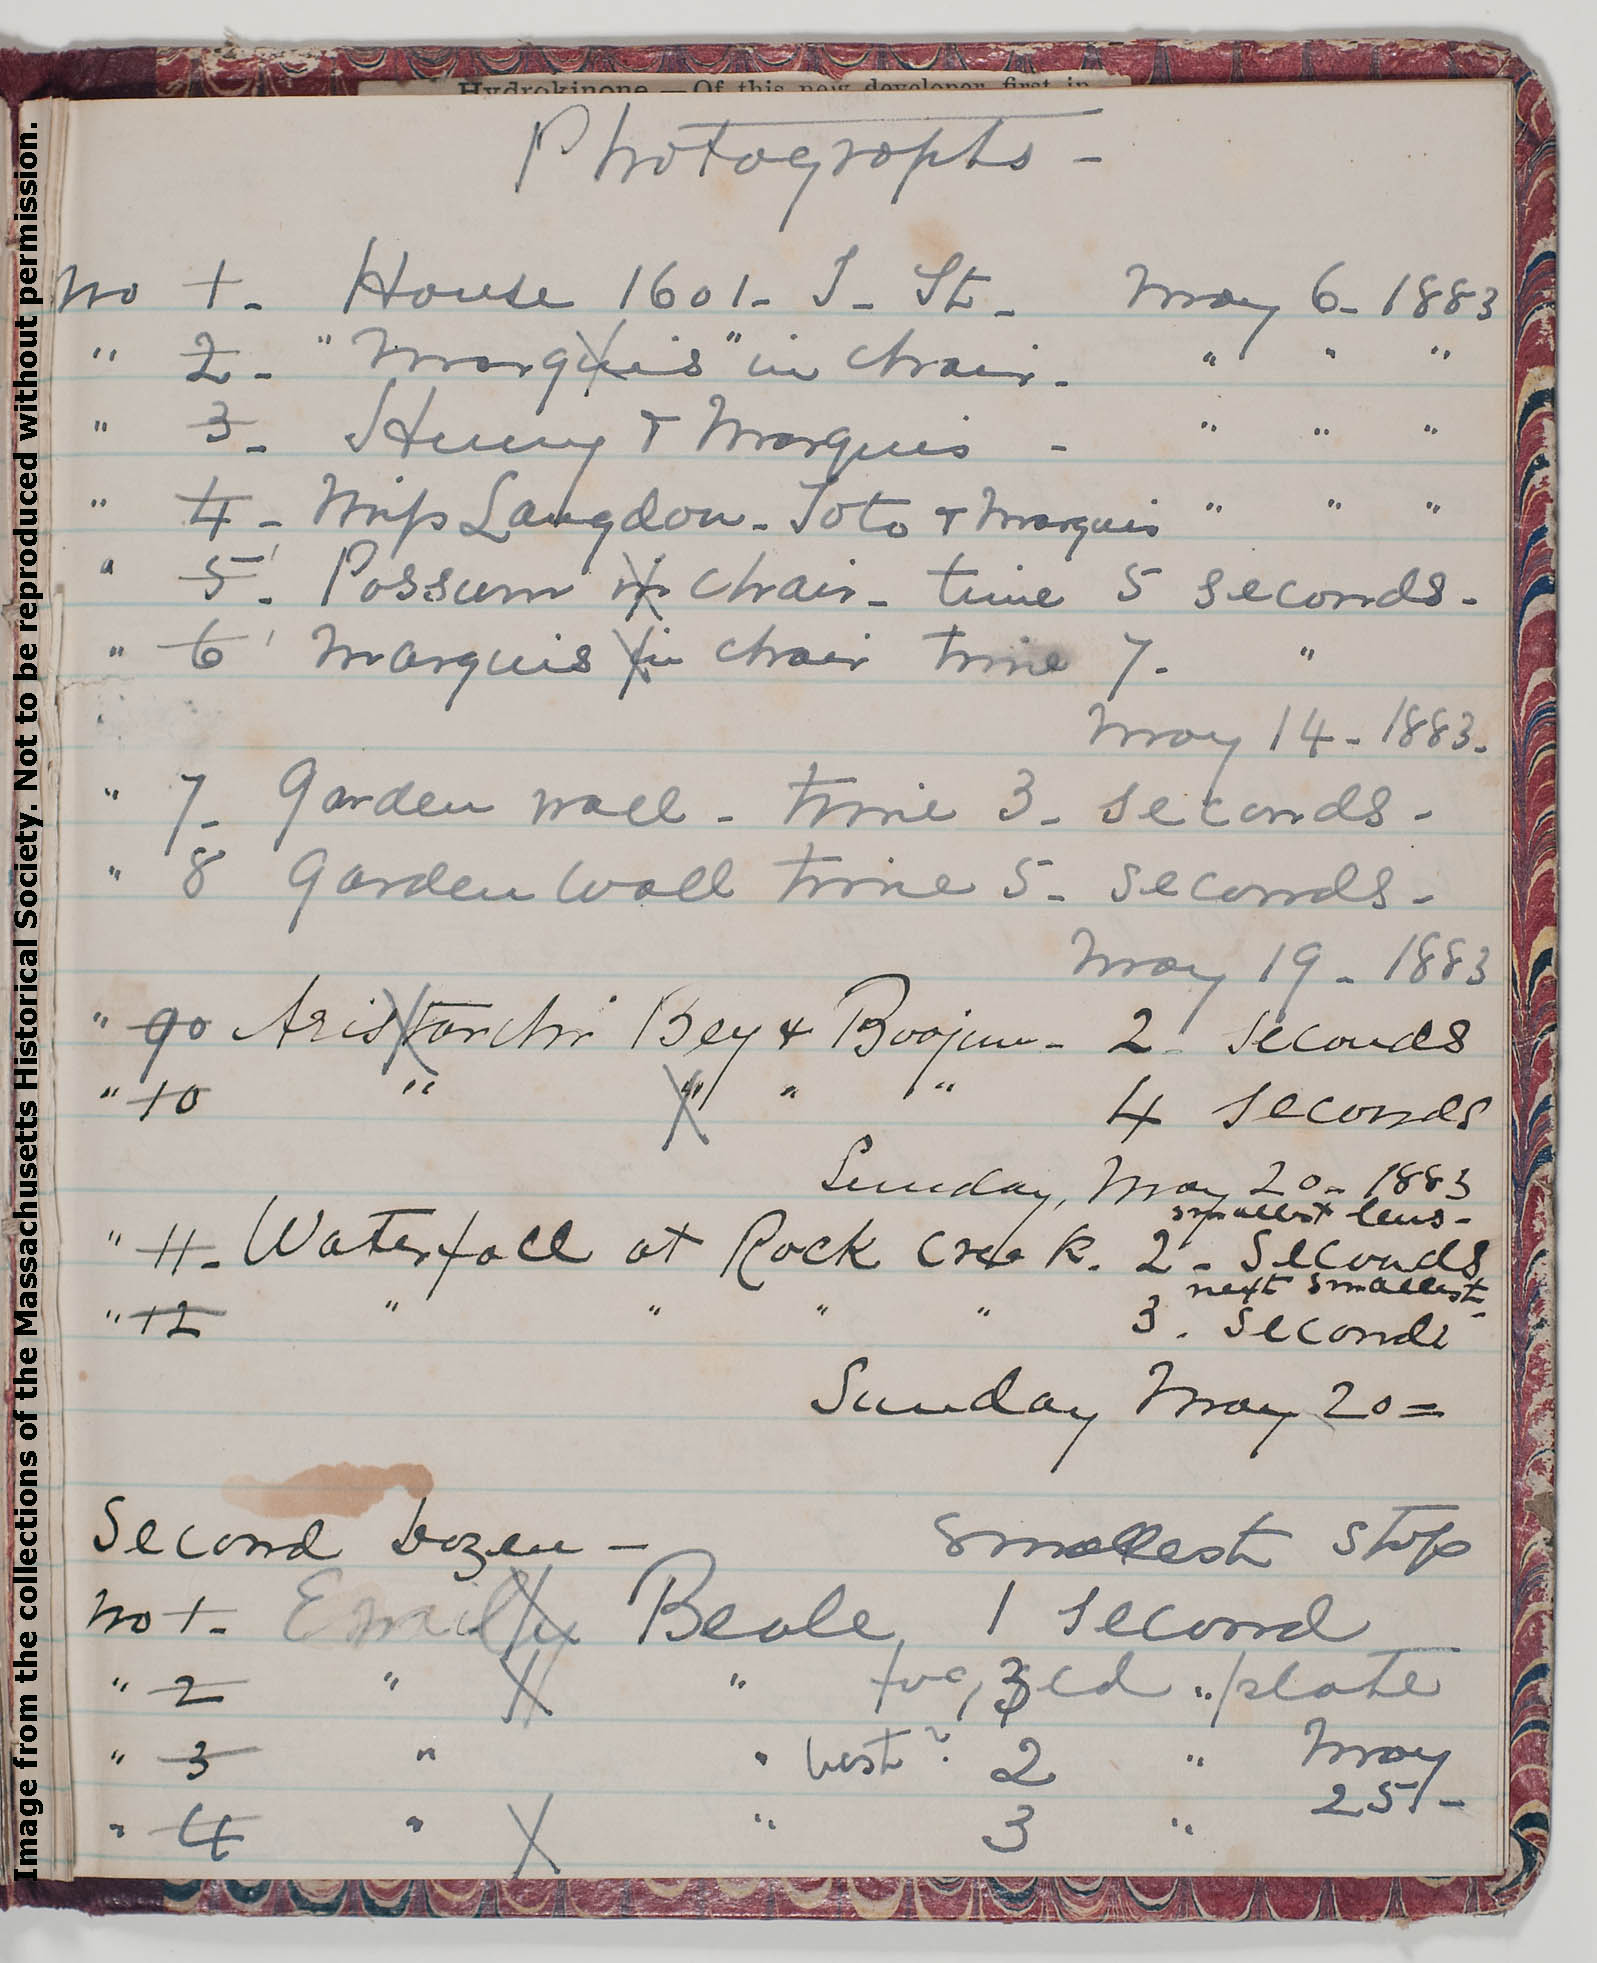 Hydrokinone. — Of this new developer, first in
Photographs -
No 1 - House 1601 - I - St - May 6 - 1883
" 2 - "Marquis" in chair - " " "
" 3 - Henry & Marquis - " " "
" 4 - Miss Langdon - Toto & Marquis " " "
" 5 - Possum in chair - time 5 seconds -
" 6 Marquis in chair time 7 - "
May 14 - 1883 -
" 7 - Garden wall - time 3 - seconds -
" 8 Garden wall time 5 - seconds -
May 19 - 1883
" 90 Aristarchi Bey & Boojum - 2 - Seconds
" 10 " " " " 4 seconds
Sunday, May 20 - 1883
smallest lens -
" 11 - Waterfall at Rock Creek. 2 - Seconds
next smallest -
" 12 " " " " 3 - Seconds
Sunday May 20 =
Second Dozen - Smallest stop
No 1 - Emily Beale, 1 second
" 2 " " 3 " plate
" 3 " " best? 2 " May
25 -
" 4 " " 3 "
Image from the collections of the Massachusetts Historical Society. Not to be reproduced without permission.